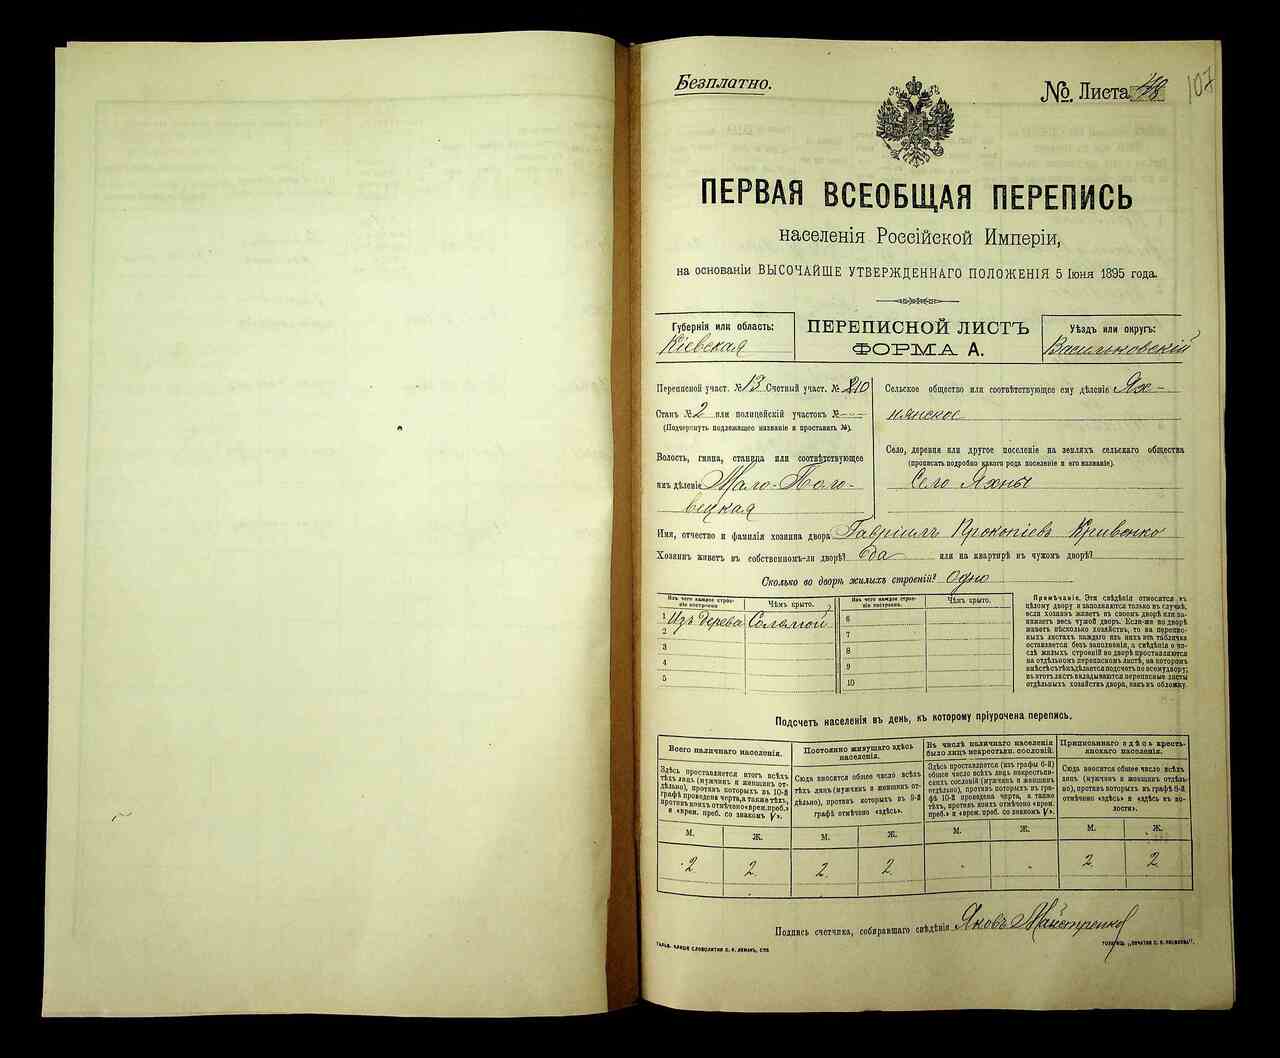 Безплатно.
№ Листа 48
107
ПЕРВАЯ ВСЕОБЩАЯ ПЕРЕПИСЬ
населенія Россійской Имперіи,
на основаніи ВЫСОЧАЙШЕ УТВЕРЖДЕННАГО ПОЛОЖЕНІЯ 5 Іюня 1895 года.
Губернія или область:
Кіевская
ПЕРЕПИСНОЙ ЛИСТЪ
ФОРМА А.
Уѣздъ или округъ:
Васильковскій
Переписной участ. № 13 Счетный участ. № 210
Станъ № 2 или полицейскій участокъ №
(Подчеркнуть подлежащее названіе и проставить №).
Волость, гмина, станица или соотвѣтствующее
имъ дѣленіе Мало-Поло-
вецкая
Сельское общество или соотвѣтствующее ему дѣленіе Ях-
нянское
Село, деревня или другое поселеніе на земляхъ сельскаго общества
(прописать подробно какого рода поселеніе и его названіе).
Село Яхны
Имя, отчество и фамилія хозяина двора Гавріилъ Прокопіевъ Кривенко
Хозяинъ живетъ въ собственномъ-ли дворѣ? да или на квартирѣ въ чужомъ дворѣ?
Сколько во дворѣ жилыхъ строеній? Одно
Изъ чего каждое строе-
ніе построено
Чѣмъ крыто.
Изъ чего каждое строе-
ніе построено.
Чѣмъ крыто.
1 Изъ дерева Соломой
2
3
4
5
6
7
8
9
10
Примѣчанія. Эти свѣдѣнія относятся къ
цѣлому двору и заполняются только въ случаѣ,
если хозяинъ живетъ въ своемъ дворѣ или за-
нимаетъ весь чужой дворъ. Если-же во дворѣ
живетъ нѣсколько хозяйствъ, то на перепис-
ныхъ листахъ каждаго изъ нихъ эта табличка
оставляется безъ заполненія, а свѣдѣнія о чи-
слѣ жилыхъ строеній во дворѣ проставляются
на отдѣльномъ переписномъ листѣ, на которомъ
вмѣстѣ съ тѣмъ дѣлается подсчетъ по всему двору;
въ этотъ листъ вкладываются переписные листы
отдѣльныхъ хозяйствъ двора, какъ въ обложку.
Подсчетъ населенія въ день, къ которому пріурочена перепись.
Всего наличнаго населенія.
Здѣсь проставляется итогъ всѣхъ
тѣхъ лицъ (мужчинъ и женщинъ от-
дѣльно), противъ которыхъ въ 10-й
графѣ проведена черта, а также тѣхъ,
противъ коихъ отмѣчено «врем. преб.»
и «врем. преб. со знакомъ V».
Постоянно живущаго здѣсь
населенія.
Сюда вносится общее число всѣхъ
тѣхъ лицъ (мужчинъ и женщинъ от-
дѣльно), противъ которыхъ въ 9-й
графѣ отмѣчено «здѣсь».
Въ числѣ наличнаго населенія
было лицъ некрестьян. сословій.
Здѣсь проставляется (изъ графы 6-й)
общее число всѣхъ лицъ некрестьян-
скихъ сословій (мужчинъ и женщинъ
отдѣльно), противъ которыхъ въ гра-
фѣ 10-й проведена черта, а также
тѣхъ, противъ коихъ отмѣчено «врем.
преб.» и «врем. преб. со знакомъ V».
Приписаннаго здѣсь кресть-
янскаго населенія.
Сюда вносится общее число всѣхъ
лицъ (мужчинъ и женщинъ отдѣль-
но), противъ которыхъ въ графѣ 8-й
отмѣчено «здѣсь» и «здѣсь въ во-
лости».
М. Ж. М. Ж. М. Ж. М. Ж.
2 2 2 2 - - 2 2
Подпись счетчика, собиравшаго свѣдѣнія Яковъ Майстренко